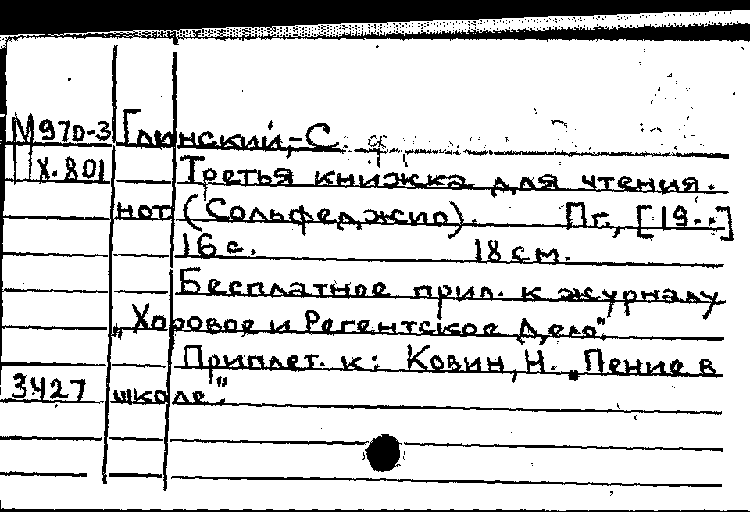 М970-3 Глинский, С.
X.801 Третья книжка для чтения.
нот (Сольфеджио). Пг., [19..]
16 с. 18 см.
Бесплатное прил. к журналу
„Хоровое и Регентское Дело".
Приплет. к: Ковин, Н. „Пение в
3427 школе".